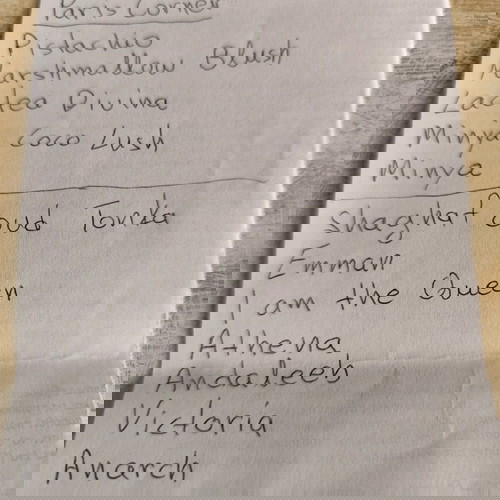 Paris Corner
Pistachio
Marshmallow Blush
Lactea Divina
Minya Coco Lush
Minya
Shaghaf Oud Tonka
Emman
I am the Queen
Athena
Andaleeb
Victoria
Anarch